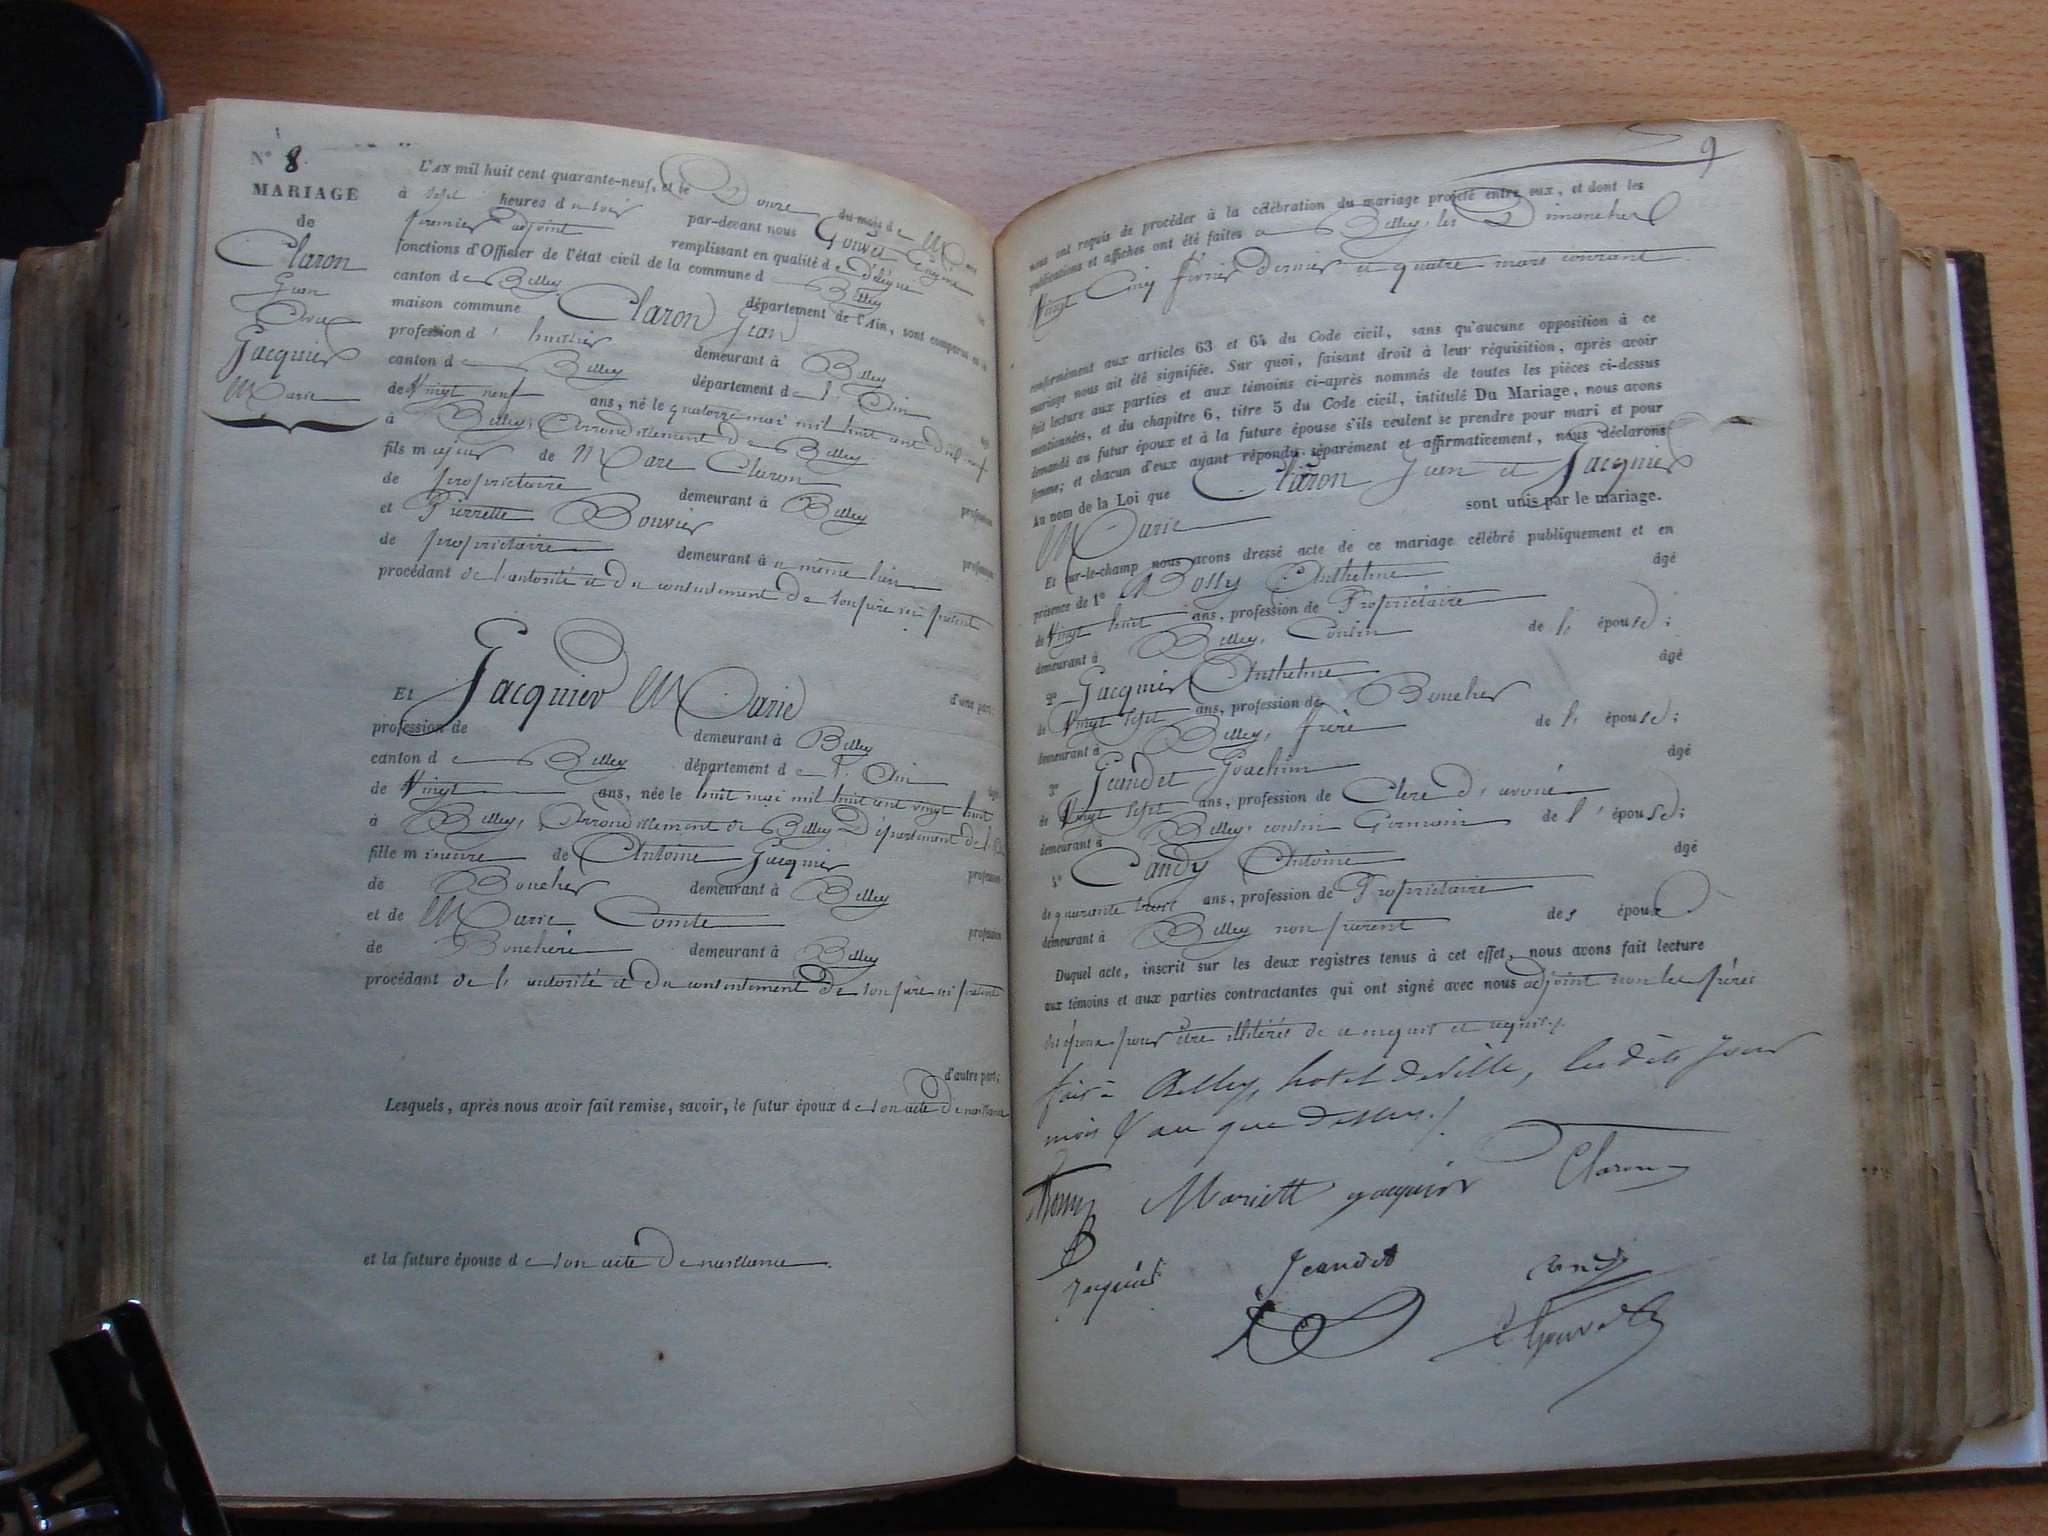 N° 8
MARIAGE
de
Claron
Jean
Avec
Jacquier
Marie
L'AN mil huit cent quarante-neuf, et le Douze du mois de Mars
à sept heures du soir par-devant nous Gouvet
premier adjoint remplissant en qualité de délégué
fonctions d'Officier de l'état civil de la commune de Belley
canton de Belley département de l'Ain, sont comparus en la
maison commune Claron Jean
profession d'huissier demeurant à Belley
canton de Belley département de l'Ain
de Vingt neuf ans, né le quatorze mai mil huit cent dix neuf
à Belley, Arrondissement de Belley
fils majeur de Marc Claron profession
de propriétaire demeurant à Belley
et Pierrette Bouvier profession
de propriétaire demeurant à même lieu
procédant de l'autorité et du consentement de son père ici présent
d'une part;
Et Jacquier Marie
profession de demeurant à Belley
canton de Belley département de l'Ain âgé
de Vingt ans, née le huit mai mil huit cent vingt huit
à Belley, Arrondissement de Belley Département de l'Ain
fille mineure de Antoine Jacquier profession
de Boucher demeurant à Belley
et de Marie Comte profession
de Bouchère demeurant à Belley
procédant de l'autorité et du consentement de son père ici présent
d'autre part;
Lesquels, après nous avoir fait remise, savoir, le futur époux de son acte de naissance
et la future épouse de son acte de naissance.
9
nous ont requis de procéder à la célébration du mariage projeté entre eux, et dont les
publications et affiches ont été faites à Belley, les Dimanches
Vingt Cinq février dernier et quatre mars courant.
conformément aux articles 63 et 64 du Code civil, sans qu'aucune opposition à ce
mariage nous ait été signifiée. Sur quoi, faisant droit à leur réquisition, après avoir
fait lecture aux parties et aux témoins ci-après nommés de toutes les pièces ci-dessus
mentionnées, et du chapitre 6, titre 5 du Code civil, intitulé Du Mariage, nous avons
demandé au futur époux et à la future épouse s'ils veulent se prendre pour mari et pour
femme; et chacun d'eux ayant répondu séparément et affirmativement, nous déclarons
Au nom de la Loi que Claron Jean et Jacquier
Marie sont unis par le mariage.
Et sur-le-champ nous avons dressé acte de ce mariage célébré publiquement et en
présence de 1° Bossy Anthelme âgé
de Vingt huit ans, profession de Propriétaire
demeurant à Belley, Cousin de l'épouse;
2° Jacquier Anthelme âgé
de Vingt sept ans, profession de Boucher
demeurant à Belley, frère de l'épouse;
3° Jeandet Joachim âgé
de Vingt sept ans, profession de Clerc d'avoué
demeurant à Belley, cousin Germain de l'épouse;
4° Candy Antoine âgé
de quarante trois ans, profession de Propriétaire
demeurant à Belley non parent des époux
Duquel acte, inscrit sur les deux registres tenus à cet effet, nous avons fait lecture
aux témoins et aux parties contractantes qui ont signé avec nous adjoint non les pères
des époux pour être illitérés de ce enquis et requis./.
fait à Belley, hotel de ville, les dits jour
mois & an que dessus./.
Mariette jacquier Claron
jacquier Jeandet Candy
Gouvet